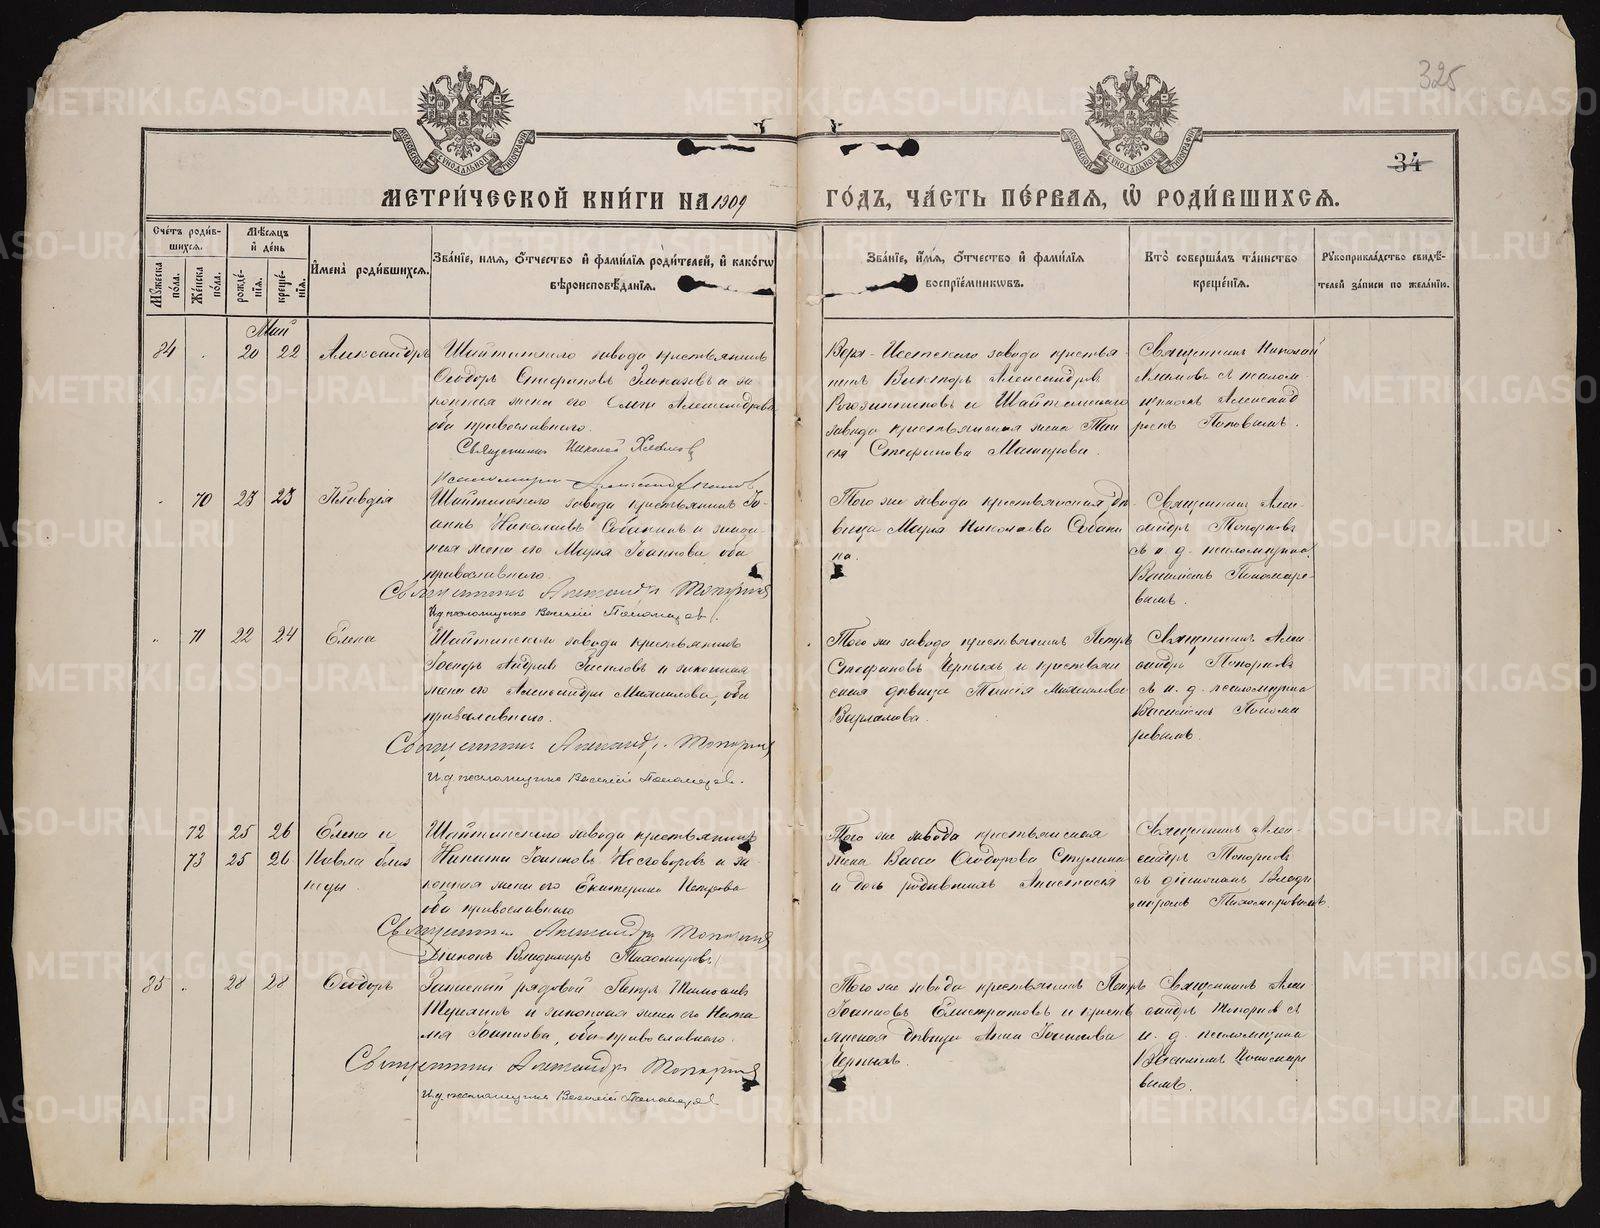 325
34
МОСКОВСКОЙ СѴНОДАЛЬНОЙ ТИПОГРАФІИ
МОСКОВСКОЙ СѴНОДАЛЬНОЙ ТИПОГРАФІИ
МЕТРИ́ЧЕСКОЙ КНИ́ГИ НА 1909 ГО́ДЪ, ЧА́СТЬ ПЕ́РВАЯ, Ѡ РОДИ́ВШИХСЯ.
Счетъ роди́в-
шихся.
Мꙋжеска по́ла.
Же́нска по́ла.
Мѣсяцъ
и де́нь
рожде́-
нїя.
креще́-
нїя.
И҆мена̀ роди́вшихся.
Зва́нїе, имя, о́тчество и҆ фами́лїя роди́телей, и҆ како́гѡ
вѣроисповѣ́данїя.
Зва́нїе, и҆́мя, о́тчество и҆ фами́лїя
воспрїе́мникѡвъ.
Кто̀ соверша́лъ та́инство
креще́нїя.
Рꙋкоприкла́дство свидѣ́-
телей за́писи по жела́нїю.
Май
84 20 22 Александръ
Шайтанскаго завода крестьянинъ
Ѳеодоръ Стефановъ и за-
конная жена его Александрова
оба православнаго.
Священникъ Николай
Верх-Исетскаго завода крестья-
нинъ Викторъ Александровъ
и Шайтанскаго
завода крестьянская жена
Стефанова
Священникъ Николай
съ псалом-
щикомъ Александ
ромъ Поповымъ.
70 23 23 Клавдія
Шайтанскаго завода крестьянинъ Іо-
аннъ Николаевъ Собакинъ и закон-
ная жена его Марія Іоаннова, оба
православнаго.
Священникъ Александръ Топорковъ
И.д. псаломщика Василій Пономаревъ.
Того же завода крестьянская дѣ-
вица Марія Николаева Собаки
на.
Священникъ Алек-
сандръ Топорковъ
съ и. д. псаломщика
Василіемъ Пономаре-
вымъ.
71 22 24 Елена
Шайтанскаго завода крестьянинъ
и законная
жена его Александра Михаилова, оба
православнаго.
Священникъ Александръ Топорковъ
И.д. псаломщика Василій Пономаревъ.
Того же завода крестьянинъ Петръ
Стефановъ Черныхъ и крестьян
ская дѣвица Михаилова
Варламова.
Священникъ Алек
сандръ Топорковъ
съ и. д. псаломщика
Василіемъ Понома
ревымъ.
72 25 26 Елена и
73 25 26 Павла близ
нецы.
Шайтанскаго завода крестьянинъ
Никита Іоанновъ Несговоровъ и за-
конная жена его Екатерина Петрова
оба православнаго
Священникъ Александръ Топорковъ
Діаконъ Владимиръ Тихомировъ
Того же завода крестьянская
жена Васса Ѳеодорова Ступина
и дочь родившихъ Анастасія
Священникъ Алек-
сандръ Топорковъ
съ діакономъ Влади
миромъ Тихомировымъ.
85 28 28 Ѳеодоръ
Запасный рядовой Петръ
и законная жена его Ната
лія Іоаннова, оба православнаго.
Священникъ Александръ Топорковъ
И.д. псаломщика Василій Пономаревъ
Того же завода крестьянинъ Петръ
Іоанновъ Елистратовъ и кресть
янская дѣвица Анна
Черныхъ.
Священникъ Алек
сандръ Топорковъ съ
и. д. псаломщика
Василіемъ Пономаре
вымъ.
METRIKI.GASO-URAL.RU